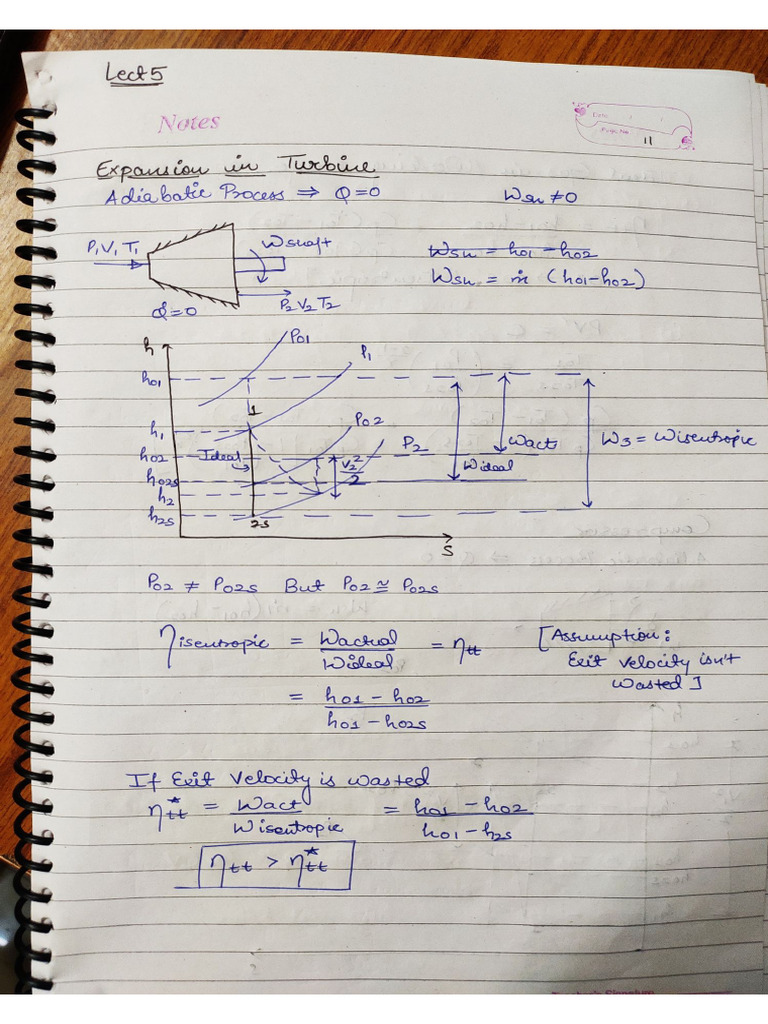 Lect 5
Notes
Date : / /
Page No. 11
Expansion in Turbine
Adiabatic Process ⇒ Q=0 Wsh ≠0
P1 V1 T1 Wshaft
Wsh = h01 - h02
Wsh = ṁ (h01-h02)
Q=0 P2 V2 T2
h P01 P1
h01
1
h1 P02
h02 Ideal P2 Wact W3 = Wisentropic
h02s V2²/2 Wideal
h2
h2s 2s
S
P02 ≠ P02s But P02 ≅ P02s
ηisentropic = Wactual / Wideal = ηtt [Assumption:
Exit velocity isn't
Wasted]
= h01 - h02 / h01 - h02s
If Exit Velocity is wasted
η*tt = Wact / Wisentropic = h01 - h02 / h01 - h2s
ηtt > η*tt